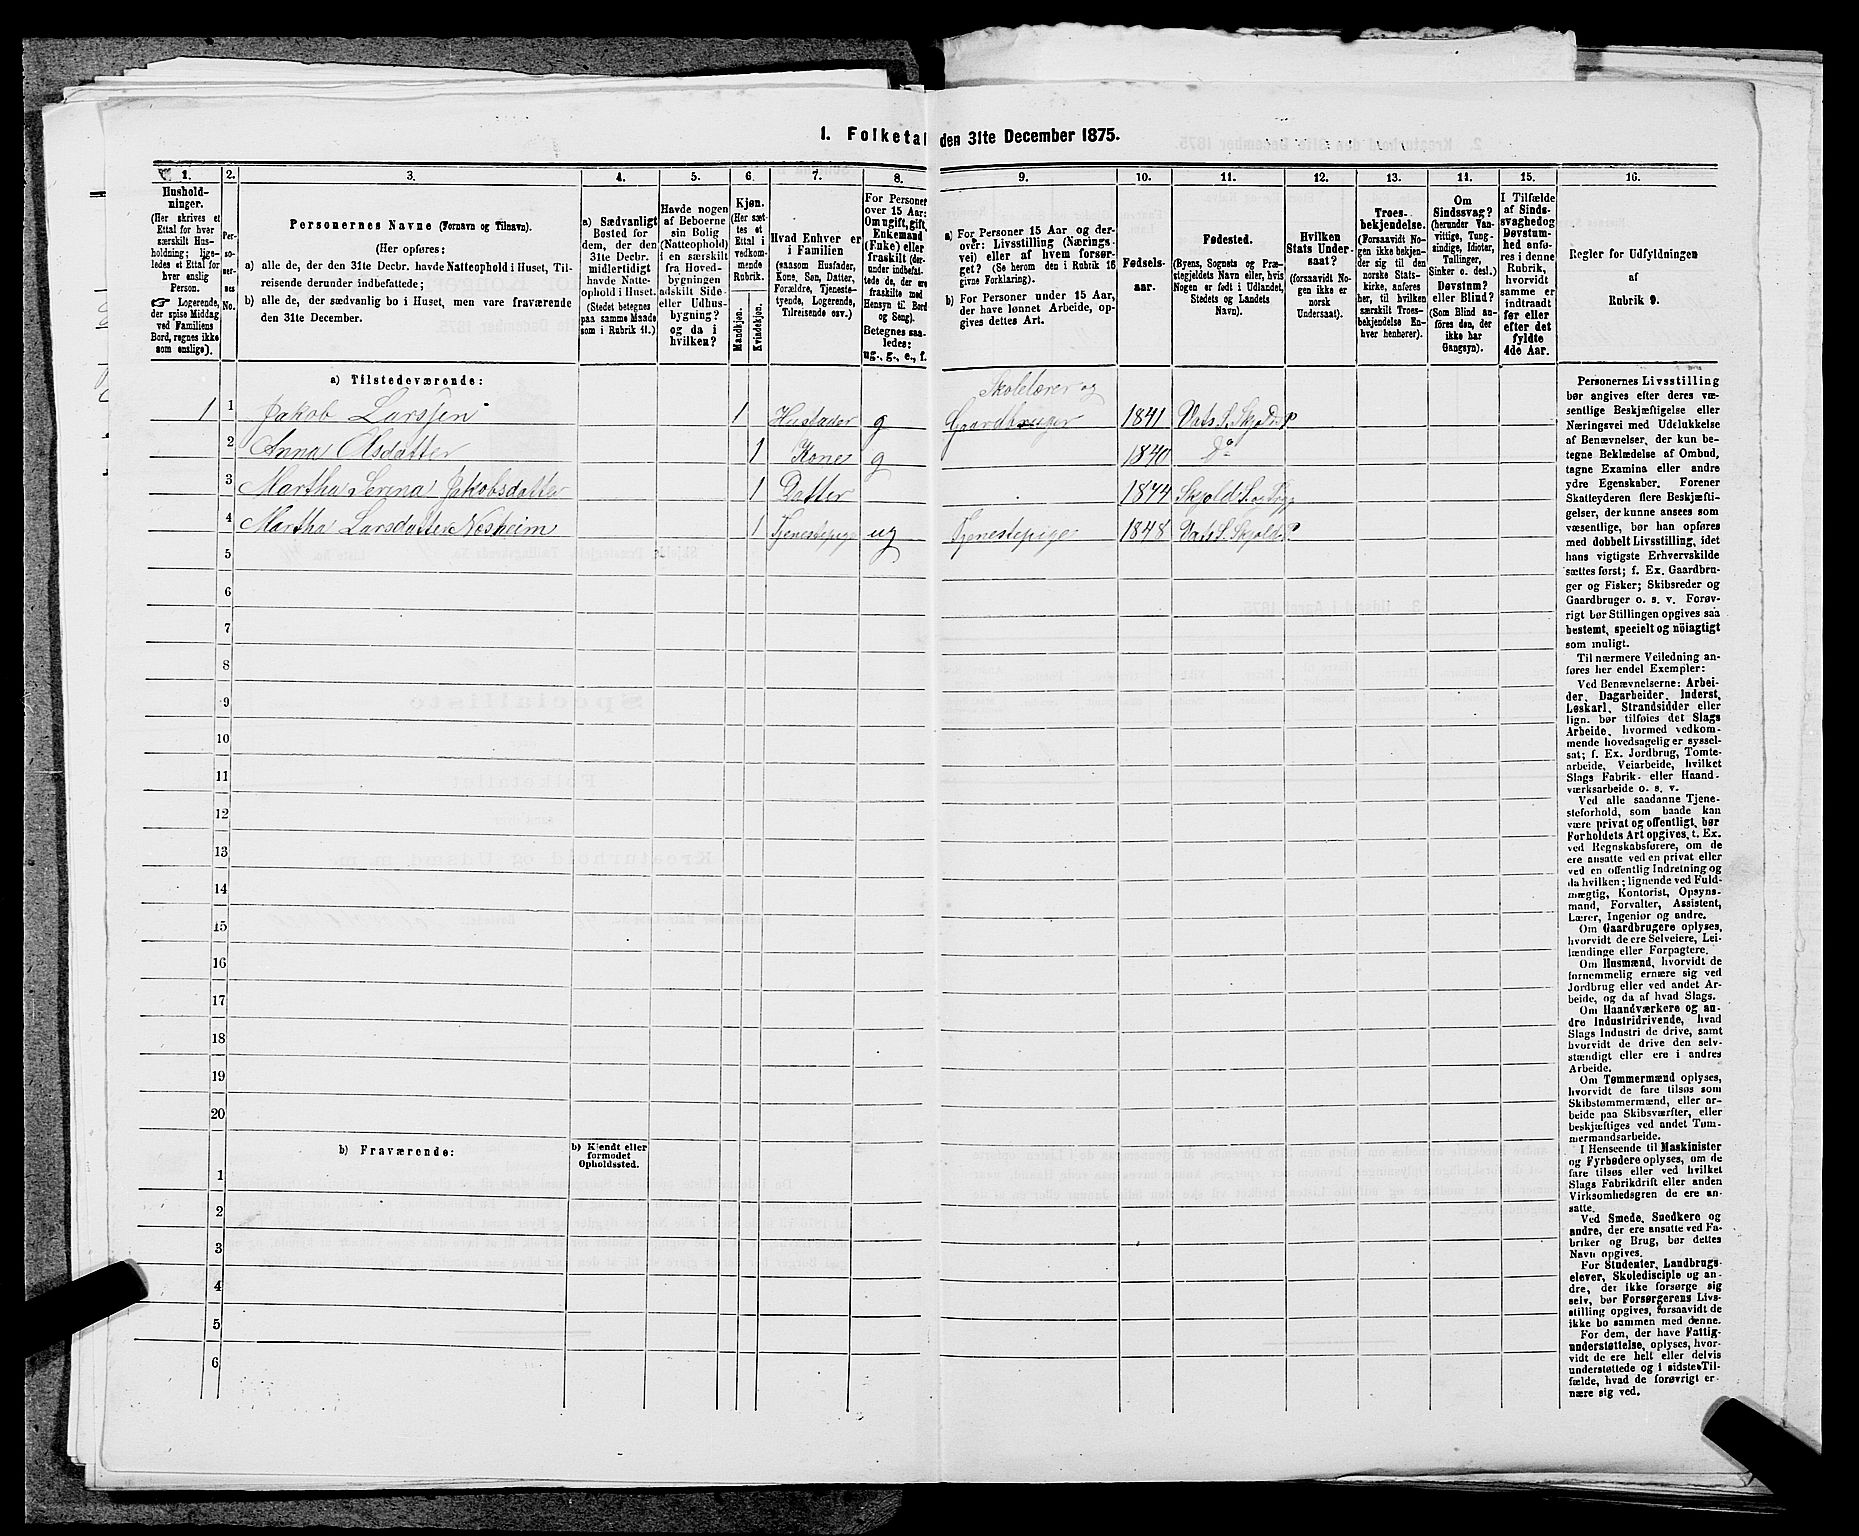 1. Folketal den 31te December 1875.
1. 2. 3. 4. 5. 6. 7. 8. 9. 10. 11. 12. 13. 14. 15. 16.
Hushold-
ninger.
(Her skrives et
Ettal for hver
særskilt Hus-
holdning; lige-
ledes et Ettal for
hver enslig
Person.
☞ Logerende,
der spise Middag
ved Familiens
Bord, regnes ikke
som enslige).
Per-
so-
ner-
nes
No.
Personernes Navne (Fornavn og Tilnavn).
(Her opføres:
a) alle de, der den 31te Decbr. havde Natteophold i Huset, Til-
reisende derunder indbefattede;
b) alle de, der sædvanlig bo i Huset, men vare fraværende
den 31te December.
a) Sædvanligt
Bosted for
dem, der den
31te Decbr.
midlertidigt
havde Natte-
ophold i Huset.
(Stedet betegnes
paa samme Maade
som i Rubrik 11.)
Havde nogen
af Beboerne
sin Bolig
(Natteophold)
i en særskilt
fra Hoved-
bygningen
adskilt Side-
eller Udhus-
bygning?
og da i
hvilken?
Kjøn.
(Her sæt-
tes et
Ettal i
vedkom-
mende
Rubrik.
Mandkjøn.
Kvindekjøn.
Hvad Enhver er
i Familien
(saasom Husfader,
Kone, Søn, Datter,
Forældre, Tjeneste-
tyende, Logerende,
Tilreisende osv.)
For Personer
over 15 Aar:
Om ugift, gift,
Enkemand
(Enke) eller
fraskilt (der-
under indbefat-
tede de, der ere
fraskilte med
Hensyn til Bord
og Seng).
Betegnes saa-
ledes:
ug., g., e., f.
a) For Personer 15 Aar og der-
over: Livsstilling (Nærings-
vei) eller af hvem forsør-
get? (Se herom den i Rubrik 16
givne Forklaring).
b) For Personer under 15 Aar,
der have lønnet Arbeide, op-
gives dettes Art.
Fødsels-
aar.
Fødested.
(Byens, Sognets og Præ-
stegjeldets Navn eller, hvis
Nogen er født i Udlandet,
Stedets og Landets
Navn).
Hvilken
Stats Under-
saat?
(forsaavidt No-
gen ikke er
norsk
Undersaat).
Troes-
bekjendelse.
(Forsaavidt No-
gen ikke bekjen-
der sig til den
norske Stats-
kirke, anføres
her, til hvilken
særskilt Troes-
bekjendelse En-
hver henhører).
Om
Sindssvag?
(herunder Van-
vittige, Tung-
sindige, Idioter,
Tullinger,
Sinker o. desl.)
Døvstum?
eller Blind?
(Som Blind an-
føres den, der
ikke har
Gangsyn).
I Tilfælde
af Sinds-
svaghed og
Døvstum-
hed anfø-
res i denne
Rubrik,
hvorvidt
samme er
indtraadt
før eller
efter det
fyldte
4de Aar.
Regler for Udfyldningen
af
Rubrik 9.
a) Tilstedeværende:
Skolelærer og
1 1 Jakob Larssen 1 Husfader g Gaardbruger 1841 Vats S. Skjold P
2 Anna Olsdatter 1 Kone g 1840 Do
3 Martha Serina Jakobsdatter 1 Datter 1874 Skjold S. og
4 Martha Larsdatter Nesheim 1 Tjenestepige ug Tjenestepige 1848 Vats S. Skjold P
5
6
7
8
9
10
11
12
13
14
15
16
17
18
19
20
b) Fraværende:
b) Kjendt eller
formodet
Opholdssted.
1
2
3
4
5
6
Personernes Livsstilling
bør angives efter deres væ-
sentlige Beskjæftigelse eller
Næringsvei med Udelukkelse
af Benævnelser, der kun be-
tegne Beklædelse af Ombud,
tagne Examina eller andre
ydre Egenskaber. Forener
Skatteyderen flere Beskjæfti-
gelser, der kunne ansees som
væsentlige, bør han opføres
med dobbelt Livsstilling, idet
hans vigtigste Erhvervskilde
sættes først; f. Ex. Gaardbru-
ger og Fisker; Skibsreder og
Gaardbruger o. s. v. Forøv-
rigt bør Stillingen opgives saa
bestemt, specielt og nöiagtigt
som muligt.
Til nærmere Veiledning an-
føres her endel Exempler:
Ved Benævnelserne: Arbei-
der, Dagarbeider, Inderst,
Løskarl, Strandsidder eller
lign. bør tilføies det Slags
Arbeide, hvormed vedkom-
mende hovedsagelig er syssel-
sat; f. Ex. Jordbrug, Tomte-
arbeide, Veiarbeide, hvilket
Slags Fabrik- eller Haand-
værksarbeide o. s. v.
Ved alle saadanne Tjene-
steforhold, som baade kan
være privat og offentligt, bør
Forholdets Art opgives, t. Ex.
ved Regnskabsførere, om de
ere ansatte ved en privat eller
ved en offentlig Indretning og
da hvilken; lignende ved Fuld-
mægtig, Kontorist, Opsyns-
mand, Forvalter, Assistent,
Lærer, Ingeniør og andre.
Om Gaardbrugere oplyses,
hvorvidt de ere Selveiere, Lei-
lændinge eller Forpagtere.
Om Husmænd, hvorvidt de
fornemmelig ernære sig ved
Jordbrug eller ved andet Ar-
beide, og da af hvad Slags.
Om Haandværkere og an-
dre Industridrivende, hvad
Slags Industri de drive, samt
hvorvidt de drive den selv-
stændigt eller ere i andres
Arbeide.
Om Tømmermænd oplyses,
hvorvidt de fare tilsøs som
Skibstømmermænd, eller ar-
beide paa Skibsværfter, eller
beskjæftiges ved andet Tøm-
mermandsarbeide.
I Henseende til Maskinister
og Fyrbødere oplyses, om de
fare tilsøs eller ved hvilket
Slags Fabrikdrift eller anden
Virksomhedsgren de ere an-
satte.
Ved Smede, Snedkere og
andre, der ere ansatte ved Fa-
briker og Brug, bør dettes
Navn opgives.
For Studenter, Landbrugs-
elever, Skoledisciple og an-
dre, der ikke forsørge sig
selv, bør Forsørgerens Livs-
stilling opgives, forsaavidt de
ikke bo sammen med denne.
For dem, der have Fattig-
understøttelse, oplyses, hvor-
vidt de ere helt eller delvis
understøttede og i sidste Til-
fælde, hvad de forøvrigt er-
nære sig ved.